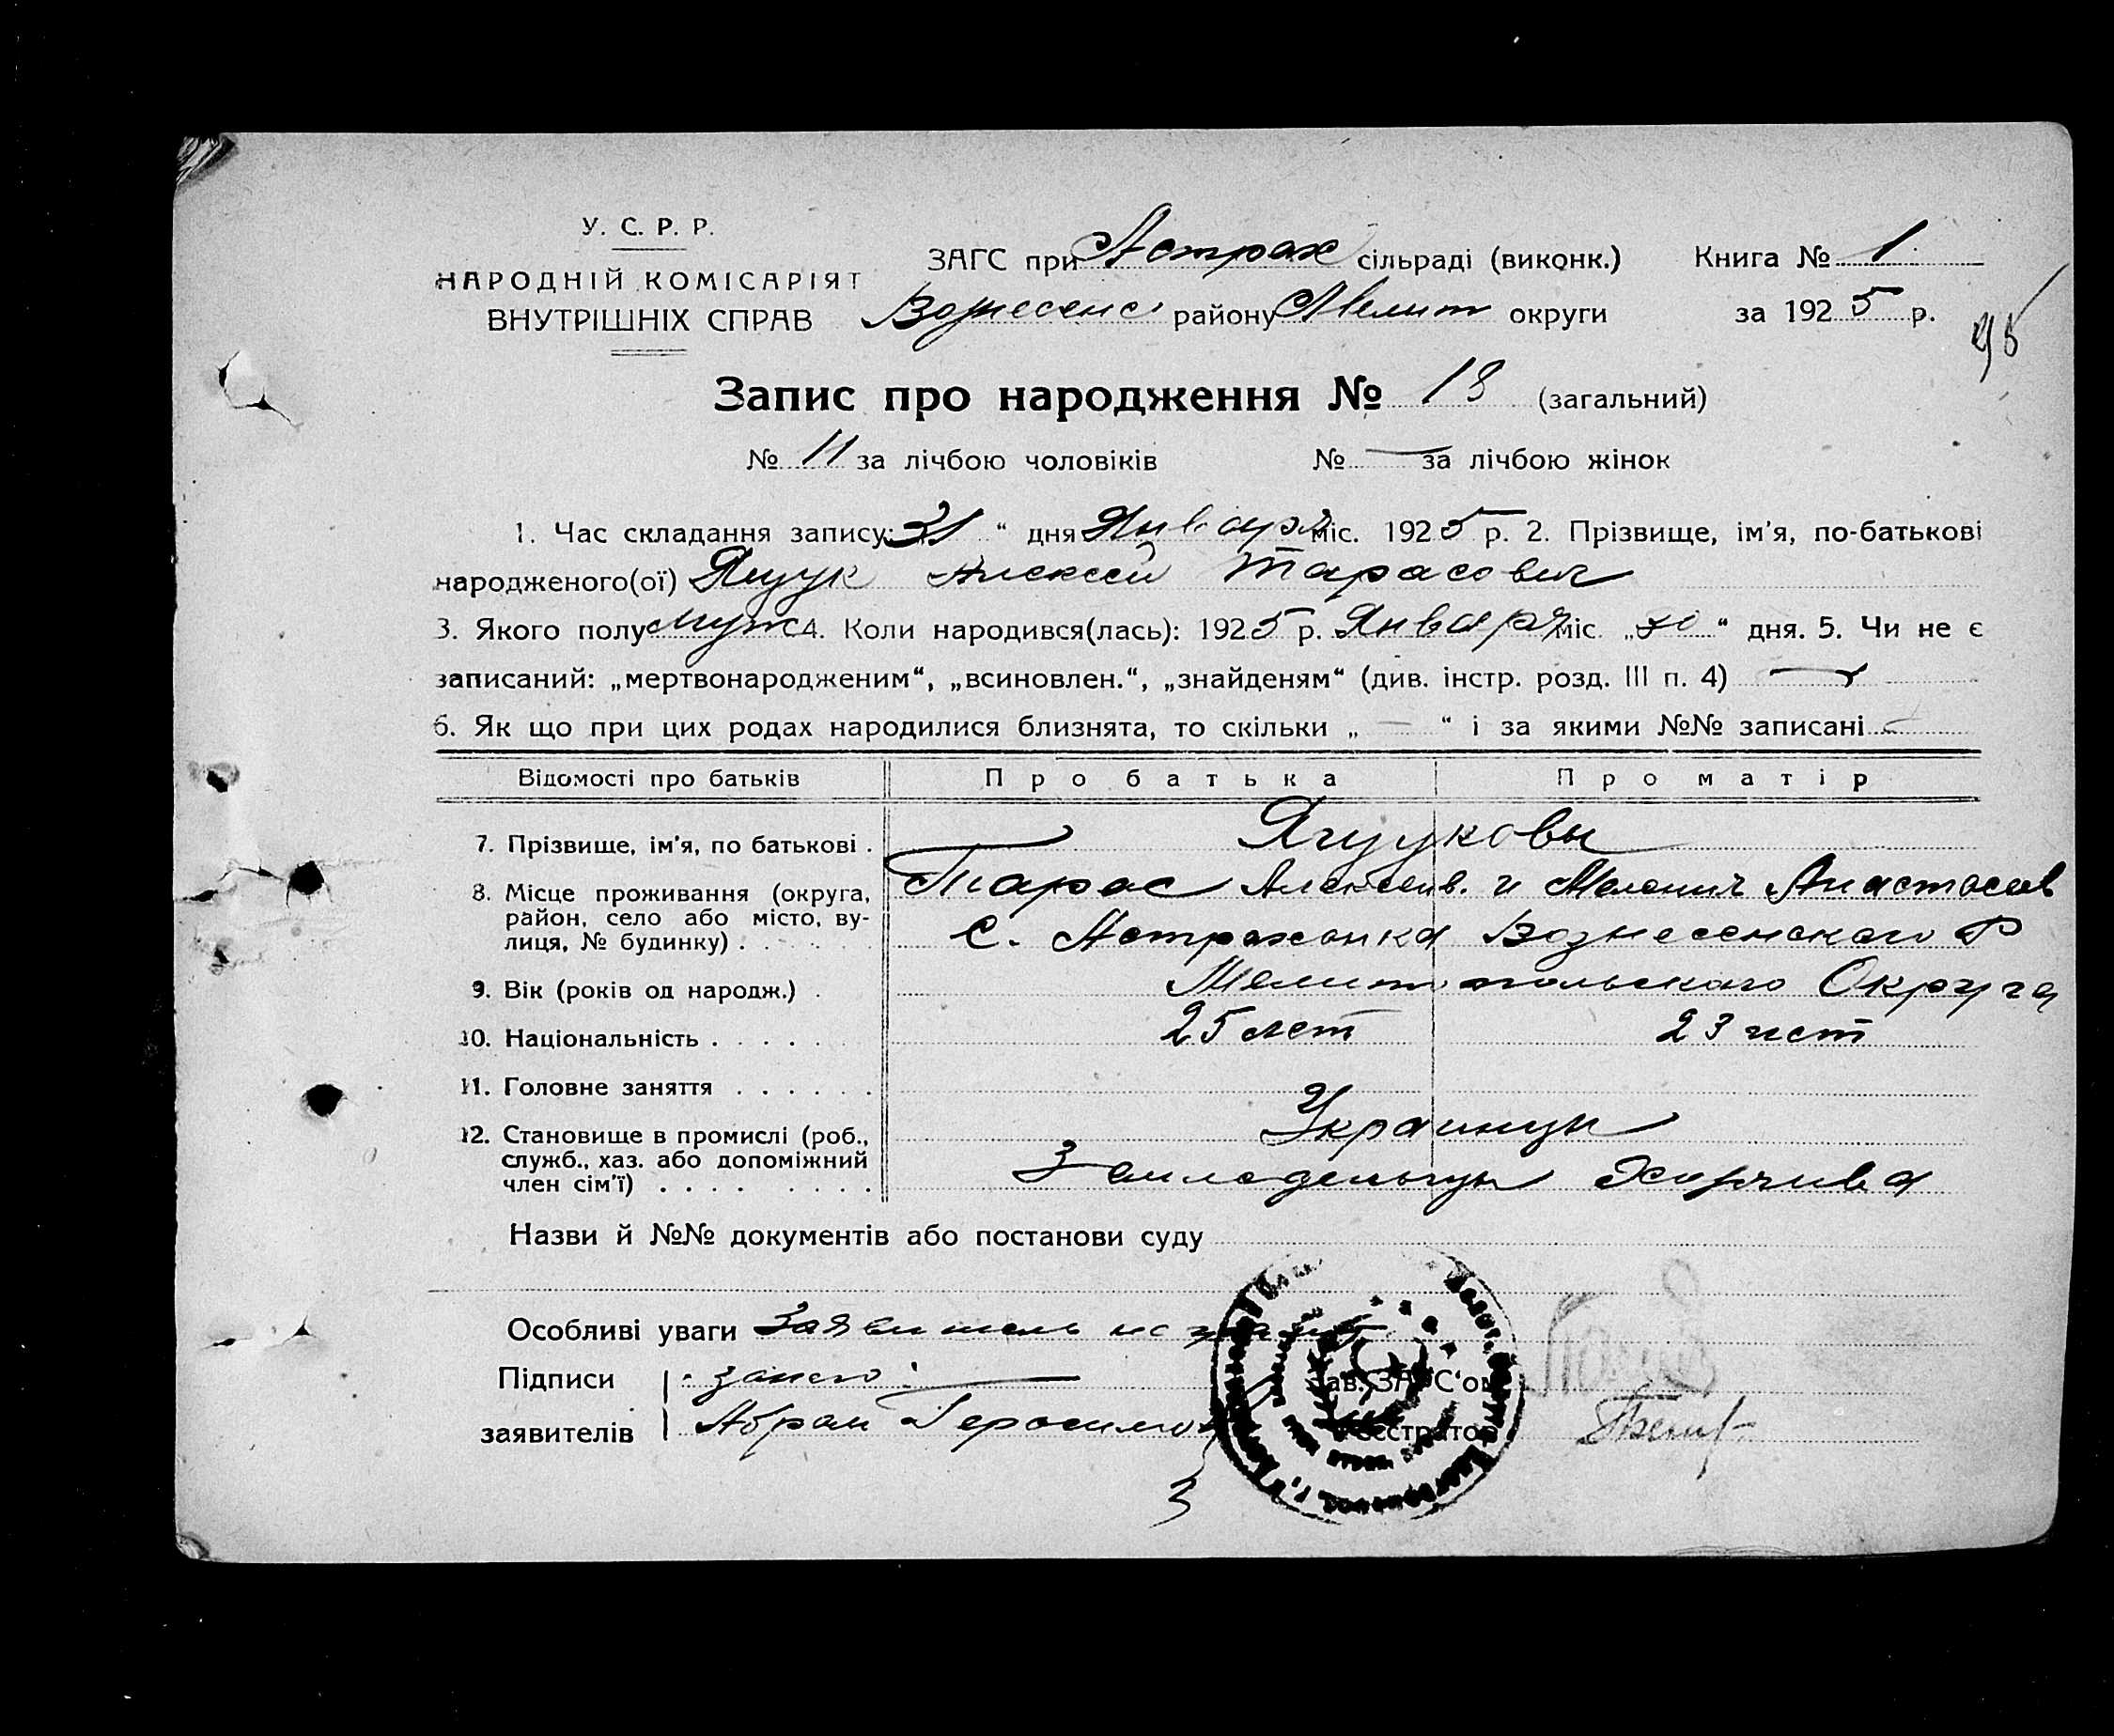 У. С. Р. Р.
НАРОДНІЙ КОМІСАРІЯТ
ВНУТРІШНІХ СПРАВ
ЗАГС при Астрах сільраді (виконк.) Книга № 1
Вознесенс району Мелит округи за 1925 р.
95
Запис про народження № 18 (загальний)
№ 11 за лічбою чоловіків № — за лічбою жінок
1. Час складання запису: 31 “ дня Января міс. 1925 р. 2. Прізвище, ім'я, по-батькові
народженого(ої) Ящук Алексей Тарасович
3. Якого полу муж 4. Коли народився(лась): 1925 р. Января міс. „30“ дня. 5. Чи не є
записаний: „мертвонародженим“, „всиновлен.“, „знайденям“ (див. інстр. розд. III п. 4) —
6. Як що при цих родах народилися близнята, то скільки „ — “ і за якими №№ записані —
Відомості про батьків Про батька Про матір
7. Прізвище, ім'я, по батькові . Ящуковы
8. Місце проживання (округа, Тарас Алексеев. и Мелания Анастасов
район, село або місто, ву-
лиця, № будинку) . С. Астраханка Вознесенского Р
9. Вік (років од народж.) . Мелитопольского Округа
10. Національність . . . . . 25 лет 23 лет
11. Головне заняття . . . . . .
12. Становище в промислі (роб., Украинцы
служб., хаз. або допоміжний
член сім'ї) . . . . . . . . Земледельцы
Назви й №№ документів або постанови суду
Особливі уваги Заявитель
Підписи
заявителів Абрам Геросимов
Зав. ЗАГС'ом
Реєстратор
З